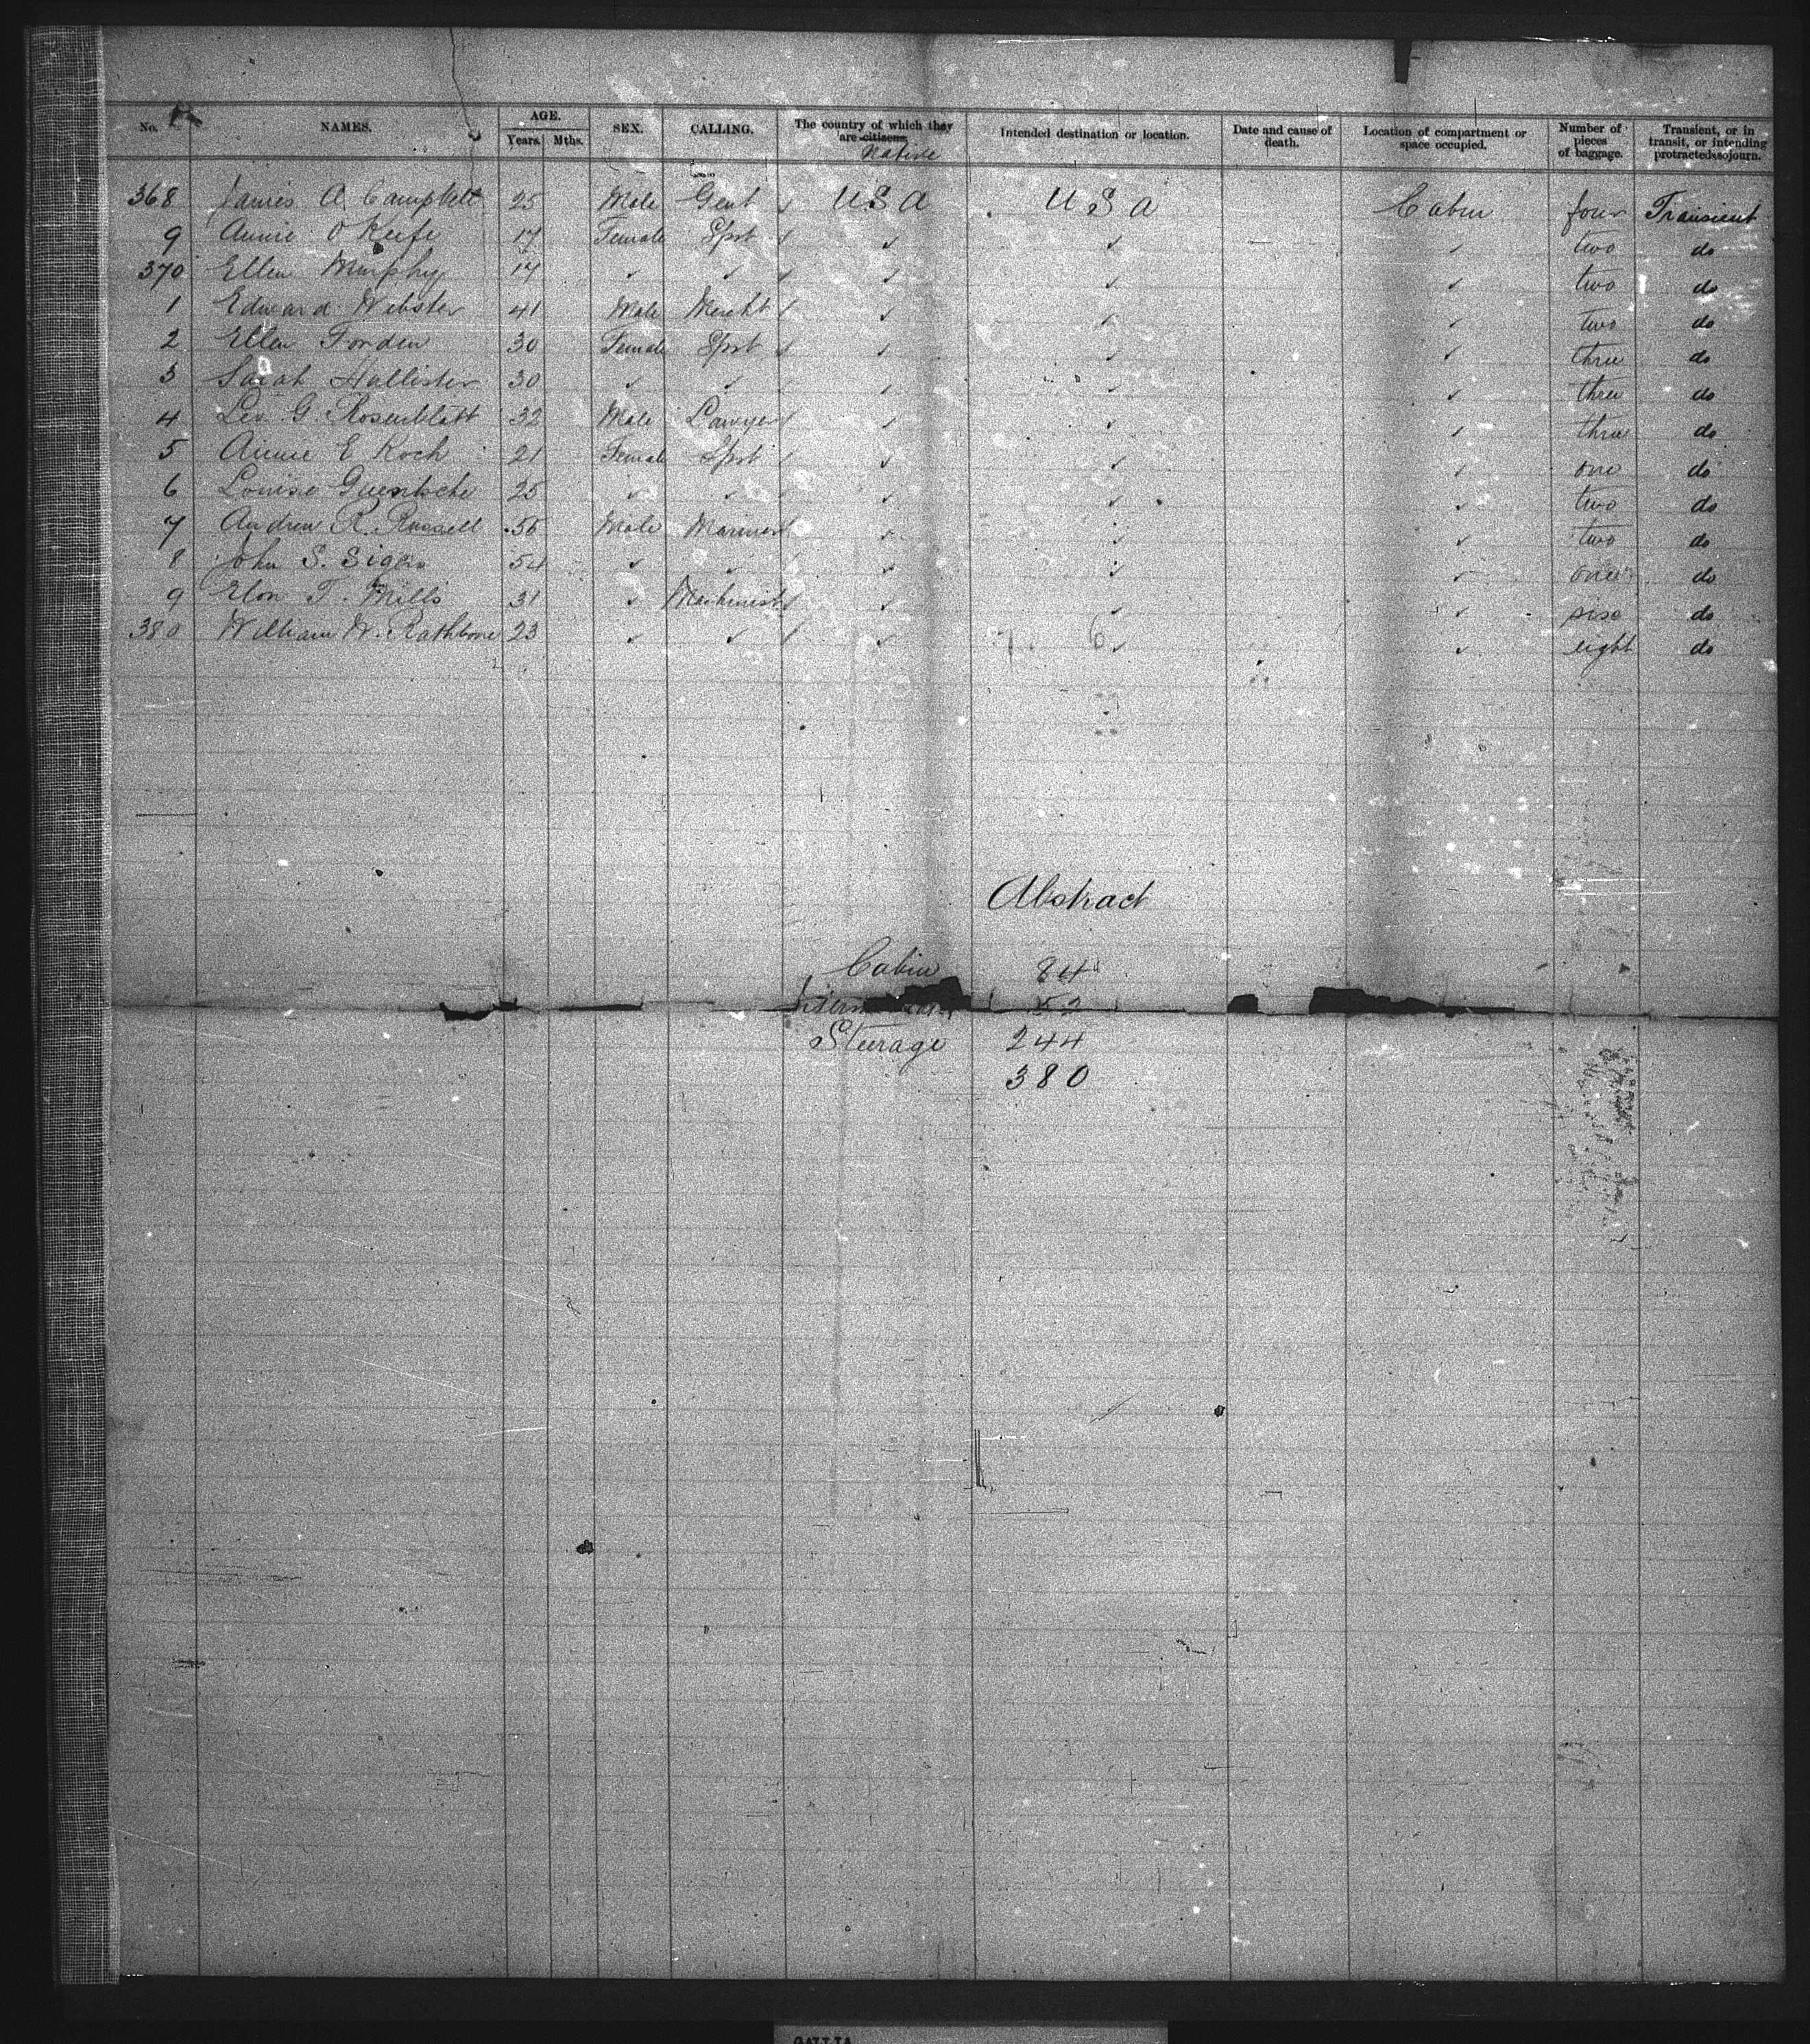 No. NAMES. AGE. Years. Mths. SEX. CALLING. The country of which they are citizens. Native Intended destination or location. Date and cause of death. Location of compartment or space occupied. Number of pieces of baggage. Transient, or in transit, or intending protracted sojourn.
368 James A. Campbell 25 Male Gent ✓ U S A U S A Cabin four Transient
9 Annie O Keefe 17 Female Spst ✓ ✓ ✓ ✓ two do
370 Ellen Murphy 17 ✓ ✓ ✓ ✓ ✓ ✓ two do
1 Edward Webster 41 Male Mercht ✓ ✓ ✓ two do
2 Ellen Forden 30 Female Spst ✓ ✓ ✓ ✓ three do
3 Sarah Hallister 30 ✓ ✓ ✓ ✓ ✓ three do
4 Leo G. Rosenblatt 32 Male Lawyer ✓ ✓ ✓ three do
5 Annie E Koch 21 Female Spst ✓ ✓ ✓ one do
6 Louise 25 ✓ ✓ ✓ ✓ ✓ two do
7 Andrew R. Russell Male Mariner ✓ ✓ ✓ two do
8 John S. 54 ✓ ✓ ✓ ✓ ✓ one do
9 Elon T. Mills 31 ✓ Machinist ✓ ✓ ✓ six do
380 William W. Rathbone 23 ✓ ✓ ✓ ✓ 7 6 ✓ ✓ eight do
Abstract
Cabin 84
52
Steerage 244
380
GALLIA